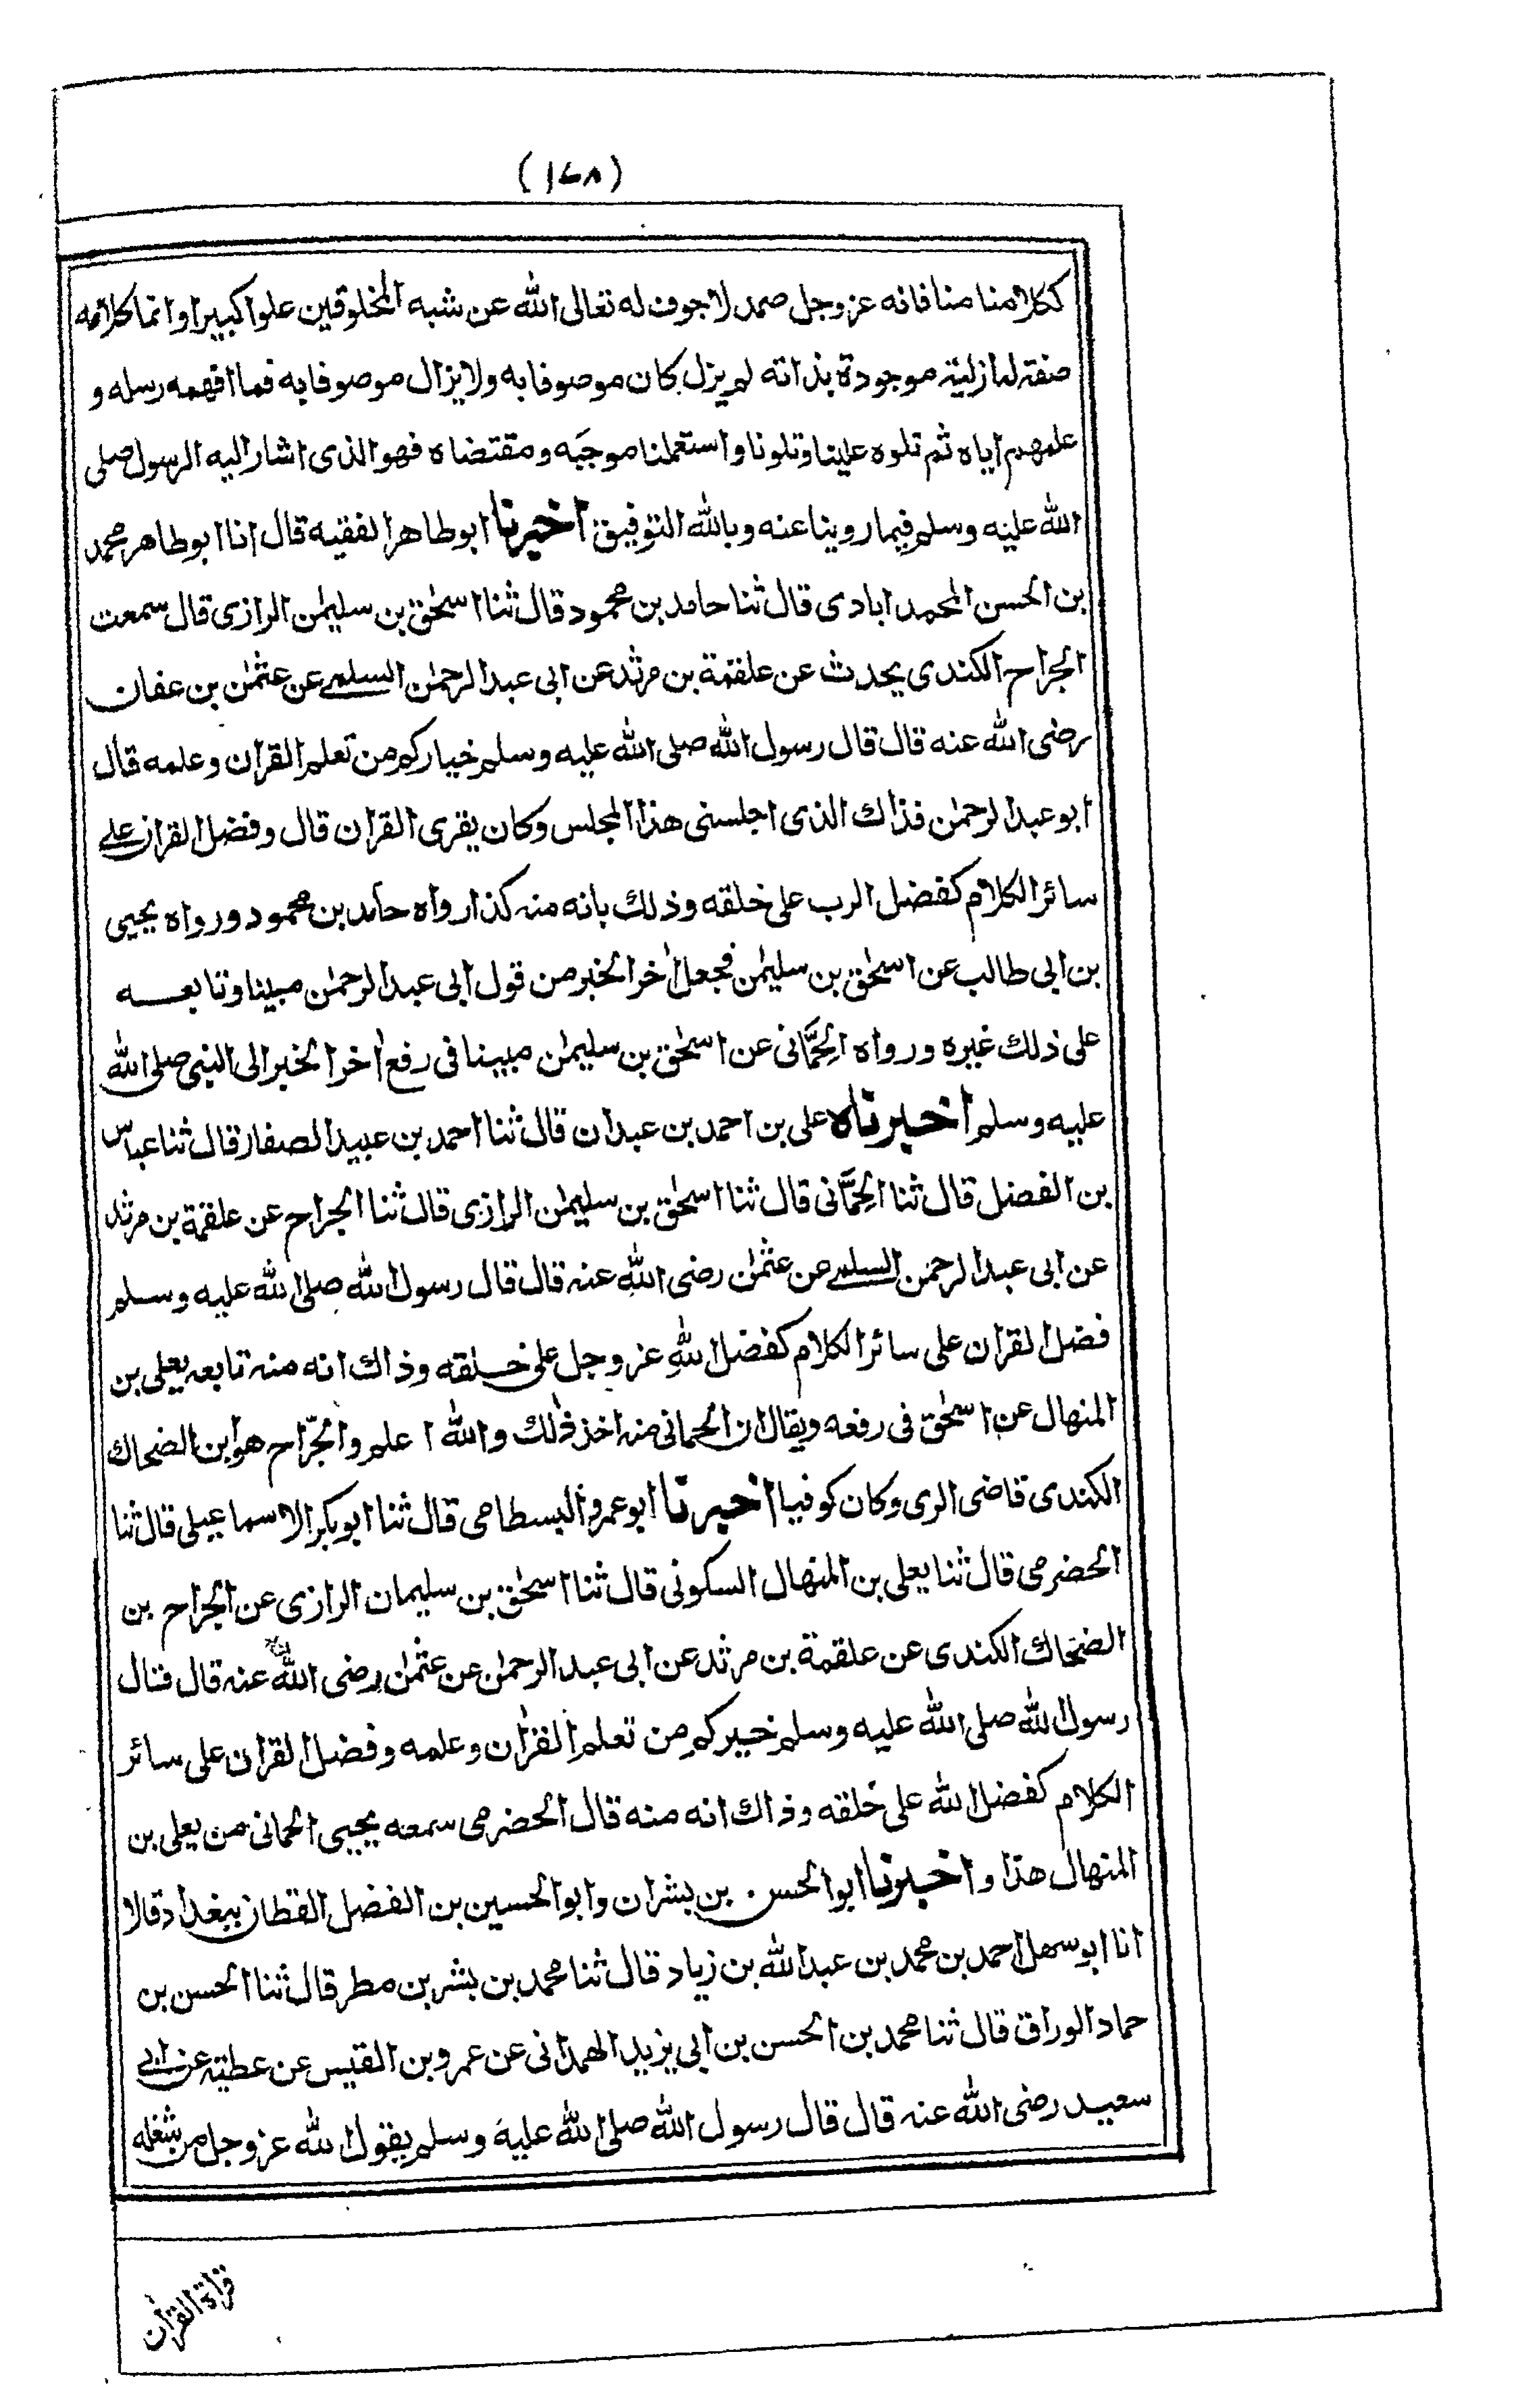 (١٧٨)
ككلامنا منا فانه عز وجل صمد لا جوف له تعالى الله عن شبه المخلوقين علوا كبيرا وانما كلامه
صفة له ازلية موجودة بذاته لم يزل كان موصوفا به ولا يزال موصوفا به فما افهمه رسله و
علمهم اياه ثم تلوه علينا وتلونا واستعملنا موجبه ومقتضاه فهو الذى اشار اليه الرسول صلى
الله عليه وسلم فيما روينا عنه وبالله التوفيق اخبرنا ابو طاهر الفقيه قال انا ابو طاهر محمد
بن الحسن المحمد ابادى قال ثنا حامد بن محمود قال ثنا اسحٰق بن سليمٰن الرازى قال سمعت
الجراح الكندى يحدث عن علقمة بن مرثد عن ابى عبد الرحمٰن السلمى عن عثمٰن بن عفان
رضى الله عنه قال قال رسول الله صلى الله عليه وسلم خياركم من تعلم القران وعلمه قال
ابو عبد الرحمٰن فذاك الذى اجلسنى هذا المجلس وكان يقرى القران قال وفضل القران على
سائر الكلام كفضل الرب على خلقه وذلك بانه منه كذا رواه حامد بن محمود ورواه يحيى
بن ابى طالب عن اسحٰق بن سليمٰن فجعل اٰخر الخبر من قول ابى عبد الرحمٰن مبينا وتابعه
على ذلك غيره ورواه الحِمَّانى عن اسحٰق بن سليمٰن مبينا فى رفع اٰخر الخبر الى النبى صلى الله
عليه وسلم اخبرناه على بن احمد بن عبدان قال ثنا احمد بن عبيد الصفار قال ثنا عباس
بن الفضل قال ثنا الحِمَّانى قال ثنا اسحٰق بن سليمٰن الرازى قال ثنا الجراح عن علقمة بن مرثد
عن ابى عبد الرحمٰن السلمى عن عثمٰن رضى الله عنه قال قال رسول الله صلى الله عليه وسلم
فضل القران على سائر الكلام كفضل اللهِ عز وجل على خلقه وذاك انه منه تابعه يعلى بن
المنهال عن اسحٰق فى رفعه ويقال ان الحمانى منه اخذ ذٰلك والله اعلم والجرّاح هو ابن الضحاك
الكندى قاضى الرى وكان كوفيا اخبرنا ابو عمرو البسطامى قال ثنا ابو بكر الاسماعيلى قال ثنا
الحضرمى قال ثنا يعلى بن المنهال السكونى قال ثنا اسحٰق بن سليمان الرازى عن الجراح بن
الضحاك الكندى عن علقمة بن مرثد عن ابى عبد الرحمٰن عن عثمٰن رضى الله عنه قال قال
رسول الله صلى الله عليه وسلم خيركم من تعلم القراٰن وعلمه وفضل القراٰن على سائر
الكلام كفضل الله على خلقه وذاك انه منه قال الحضرمى سمعه يحيى الحمانى من يعلى بن
المنهال هذا واخبرنا ابو الحسن بن بشران وابو الحسين بن الفضل القطان ببغداد قالا
انا ابو سهل احمد بن محمد بن عبد الله بن زياد قال ثنا محمد بن بشر بن مطر قال ثنا الحسن بن
حماد الوراق قال ثنا محمد بن الحسن بن ابى يزيد الهمدانى عن عمرو بن القيس عن عطية عن ابى
سعيد رضى الله عنه قال قال رسول الله صلى الله عليه وسلم يقول الله عز وجل من شغله
قراة القراٰن